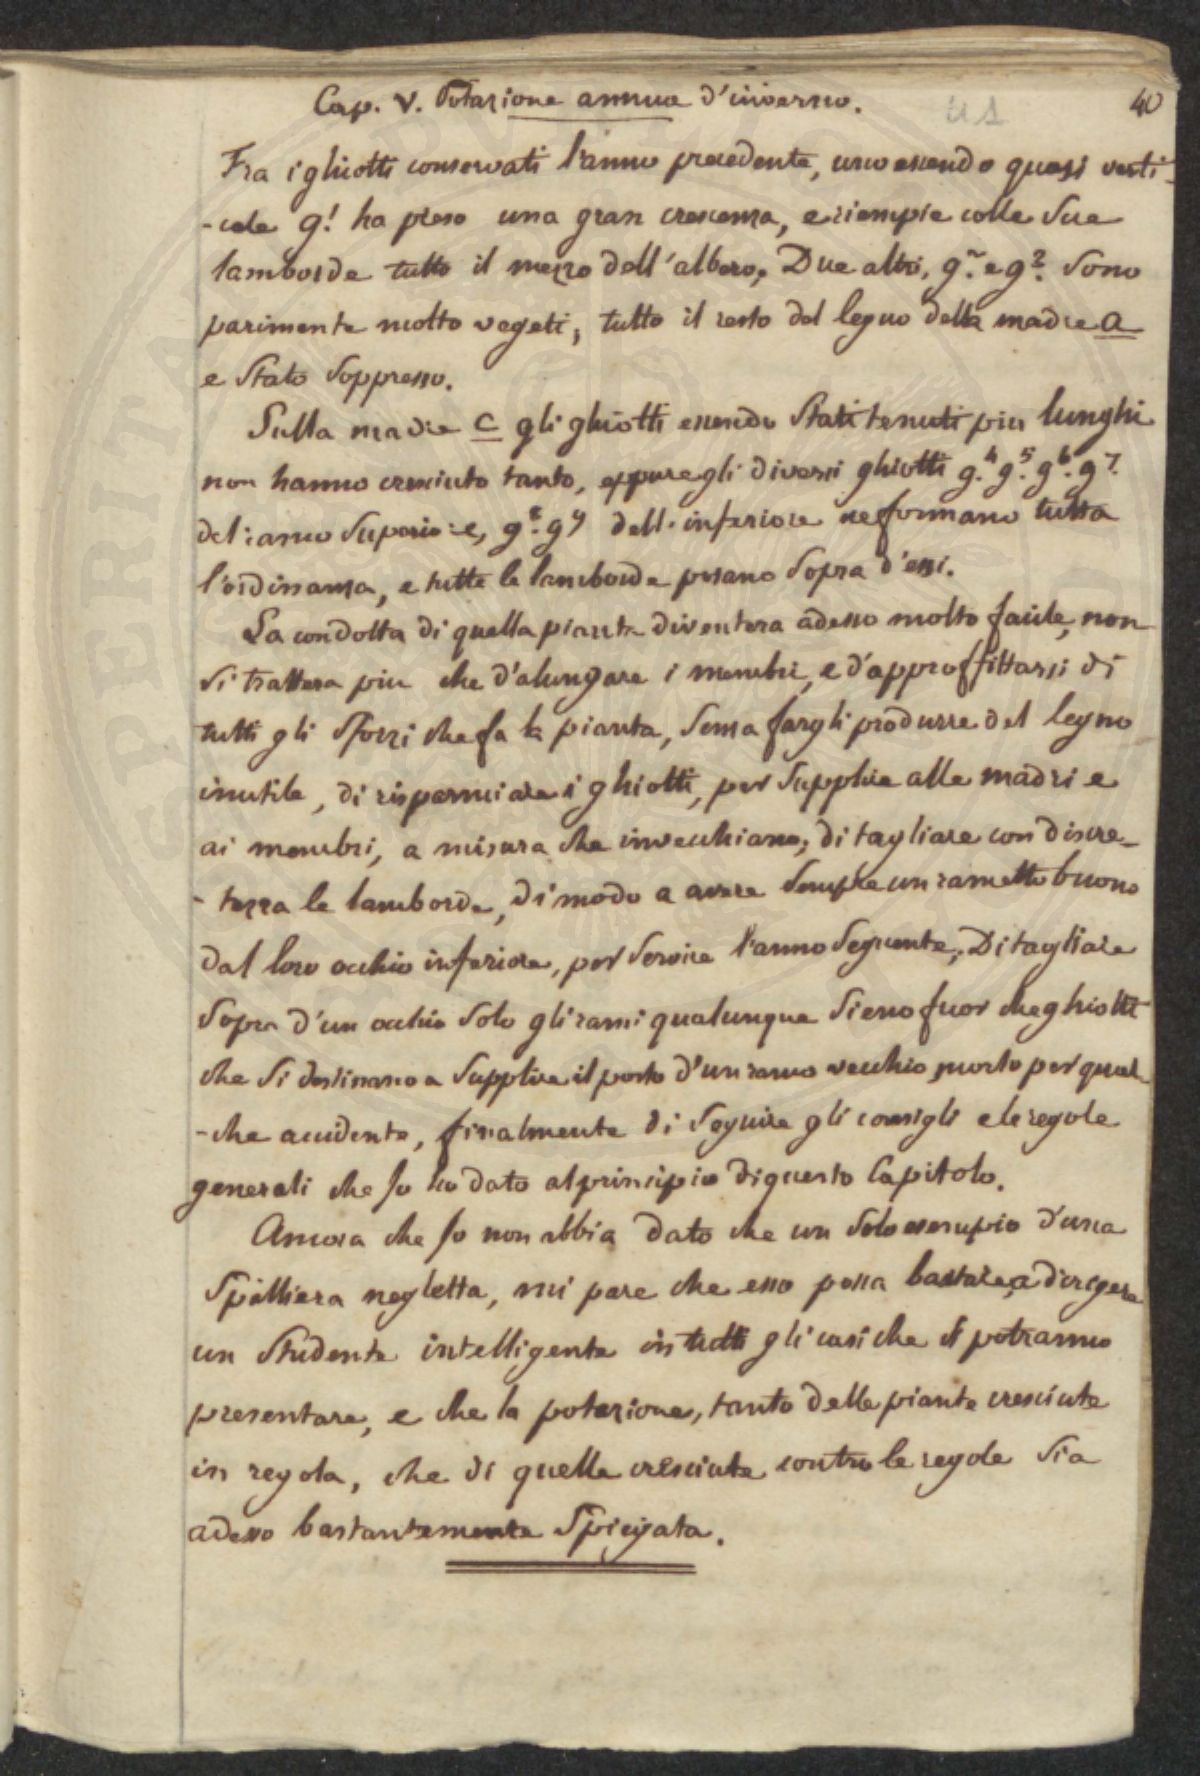 Cap. V. Potazione annua d'inverno. 40
Fra i ghiotti conservati l'anno precedente, uno essendo quasi verti-
-cale g.1 ha preso una gran crescenza, e riempie colle Sue
lamborde tutto il mezzo dell'albero, Due altri, g. e g.2 Sono
parimente molto vegeti, tutto il resto del legno della madre a
e Stato Soppresso.
Sulla madre c gli ghiotti essendo Stati tenuti piu lunghi
non hanno cresciuto tanto, eppure gli diversi ghiotti g.4 g.5 g.6 g.7
del ramo Superiore, g.8 g9 dell'inferiore ne formano tutta
l'ordinanza, e tutte le lamborde posano Sopra d'essi.
La condotta di quella pianta diventera adesso molto facile, non
Si trattera piu che d'alungare i membri, e d'approffittarsi di
tutti gli Sforzi che fa la pianta, Senza fargli produrre del legno
inutile, di risparmiare i ghiotti, per Supplire alle madri e
ai membri, a misura che invecchiano, di tagliare con discre-
-tezza le lamborde, di modo a avere Sempre un rametto buono
dal loro occhio inferiore, per Servire l'anno Seguente, Di tagliare
Sopra d'un occhio Solo gli rami qualunque Sieno fuor che ghiotti
che Si destinano a Supplire il posto d'un ramo vecchio morto per qual-
-che accidente, finalmente di Seguire gli consigli e le regole
generali che Jo ho dato al principio di questo Capitolo.
Ancora che Jo non abbia dato che un Solo esempio d'una
Spalliera negletta, mi pare che esso possa bastare, a dirigere
un Studente intelligente in tutti gli casi che Si potranno
presentare, e che la potazione, tanto delle piante cresciute
in regola, che di quelle cresciute contro le regole Sia
adesso bastantemente Spiegata.